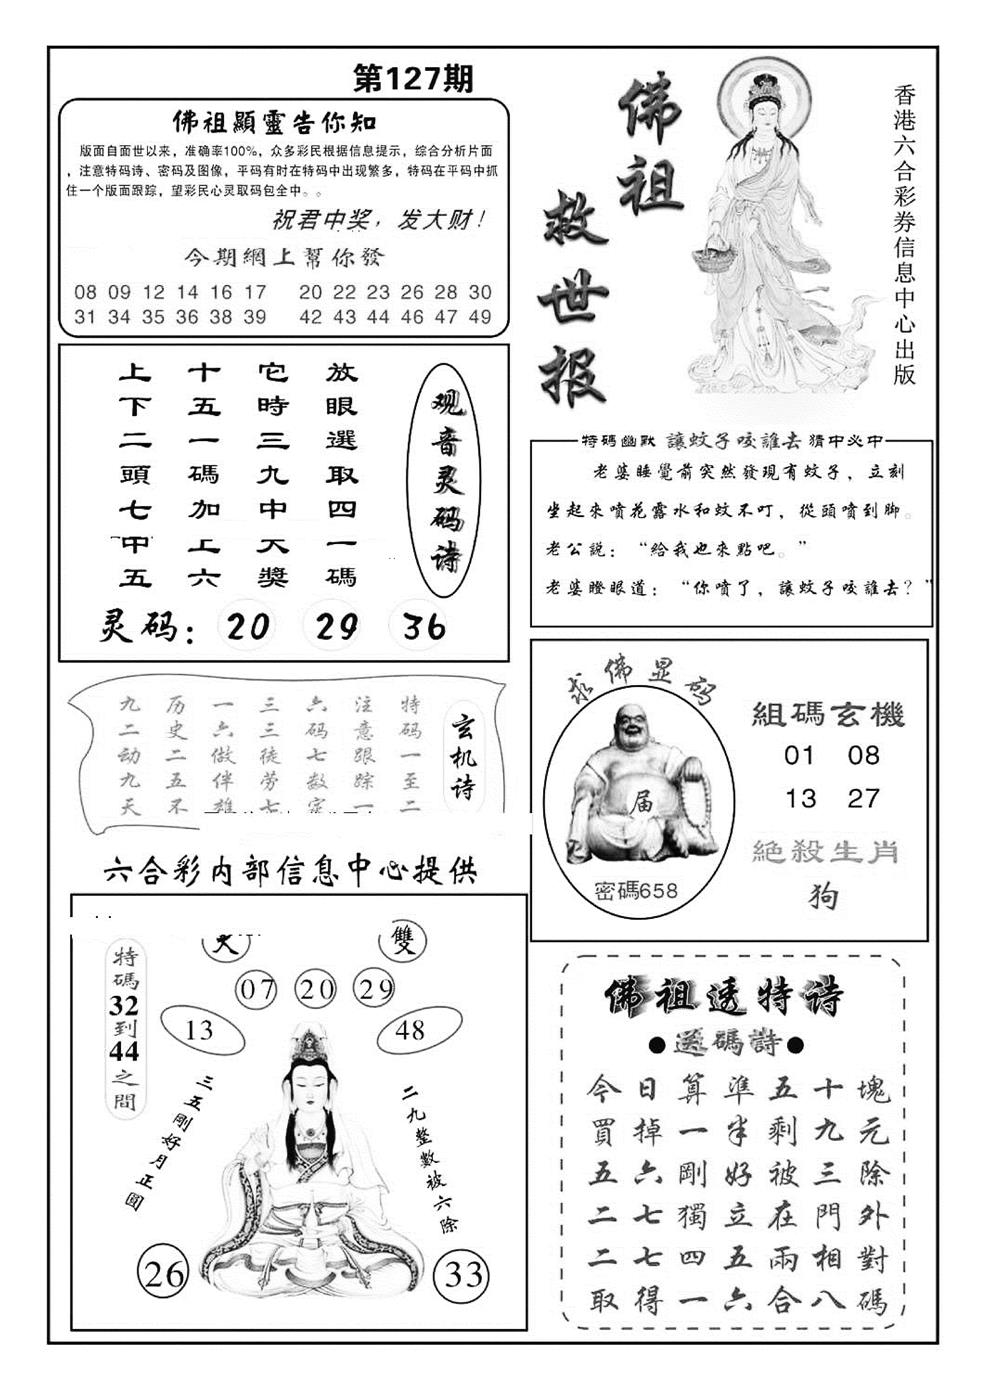 第127期
佛祖顯靈告你知
版面自面世以来，准确率100%，众多彩民根据信息提示，综合分析片面
，注意特码诗、密码及图像，平码有时在特码中出现繁多，特码在平码中抓
住一个版面跟踪，望彩民心灵取码包全中。。
祝君中奖，发大财！
今期網上幫你發
08 09 12 14 16 17 20 22 23 26 28 30
31 34 35 36 38 39 42 43 44 46 47 49
佛祖
救世报
香港六合彩券信息中心出版
观音灵码诗
放眼選取四一碼
它時三九中天獎
十五一碼加上六
上下二頭七中五
灵码：20 29 36
特碼幽默 讓蚊子咬誰去 猜中必中
老婆睡覺前突然發現有蚊子，立刻
坐起來噴花露水和蚊不叮，從頭噴到脚。
老公説：“给我也來點吧。”
老婆瞪眼道：“你噴了，讓蚊子咬誰去？”
玄机诗
特码一至二
注意跟踪一
六码七数定
三三徒劳七
一六做伴雄
历史二五不
九二动九天
求佛显码
届
密碼658
組碼玄機
01 08
13 27
絕殺生肖
狗
六合彩内部信息中心提供
大 雙
07 20 29
13 48
特碼32到44之間
三五剛好月正圓
二九整數被六除
26 33
佛祖透特诗
●送碼詩●
今日算準五十塊
買掉一半剩九元
五六剛好被三除
二七獨立在門外
二七四五兩相對
取得一六合八碼